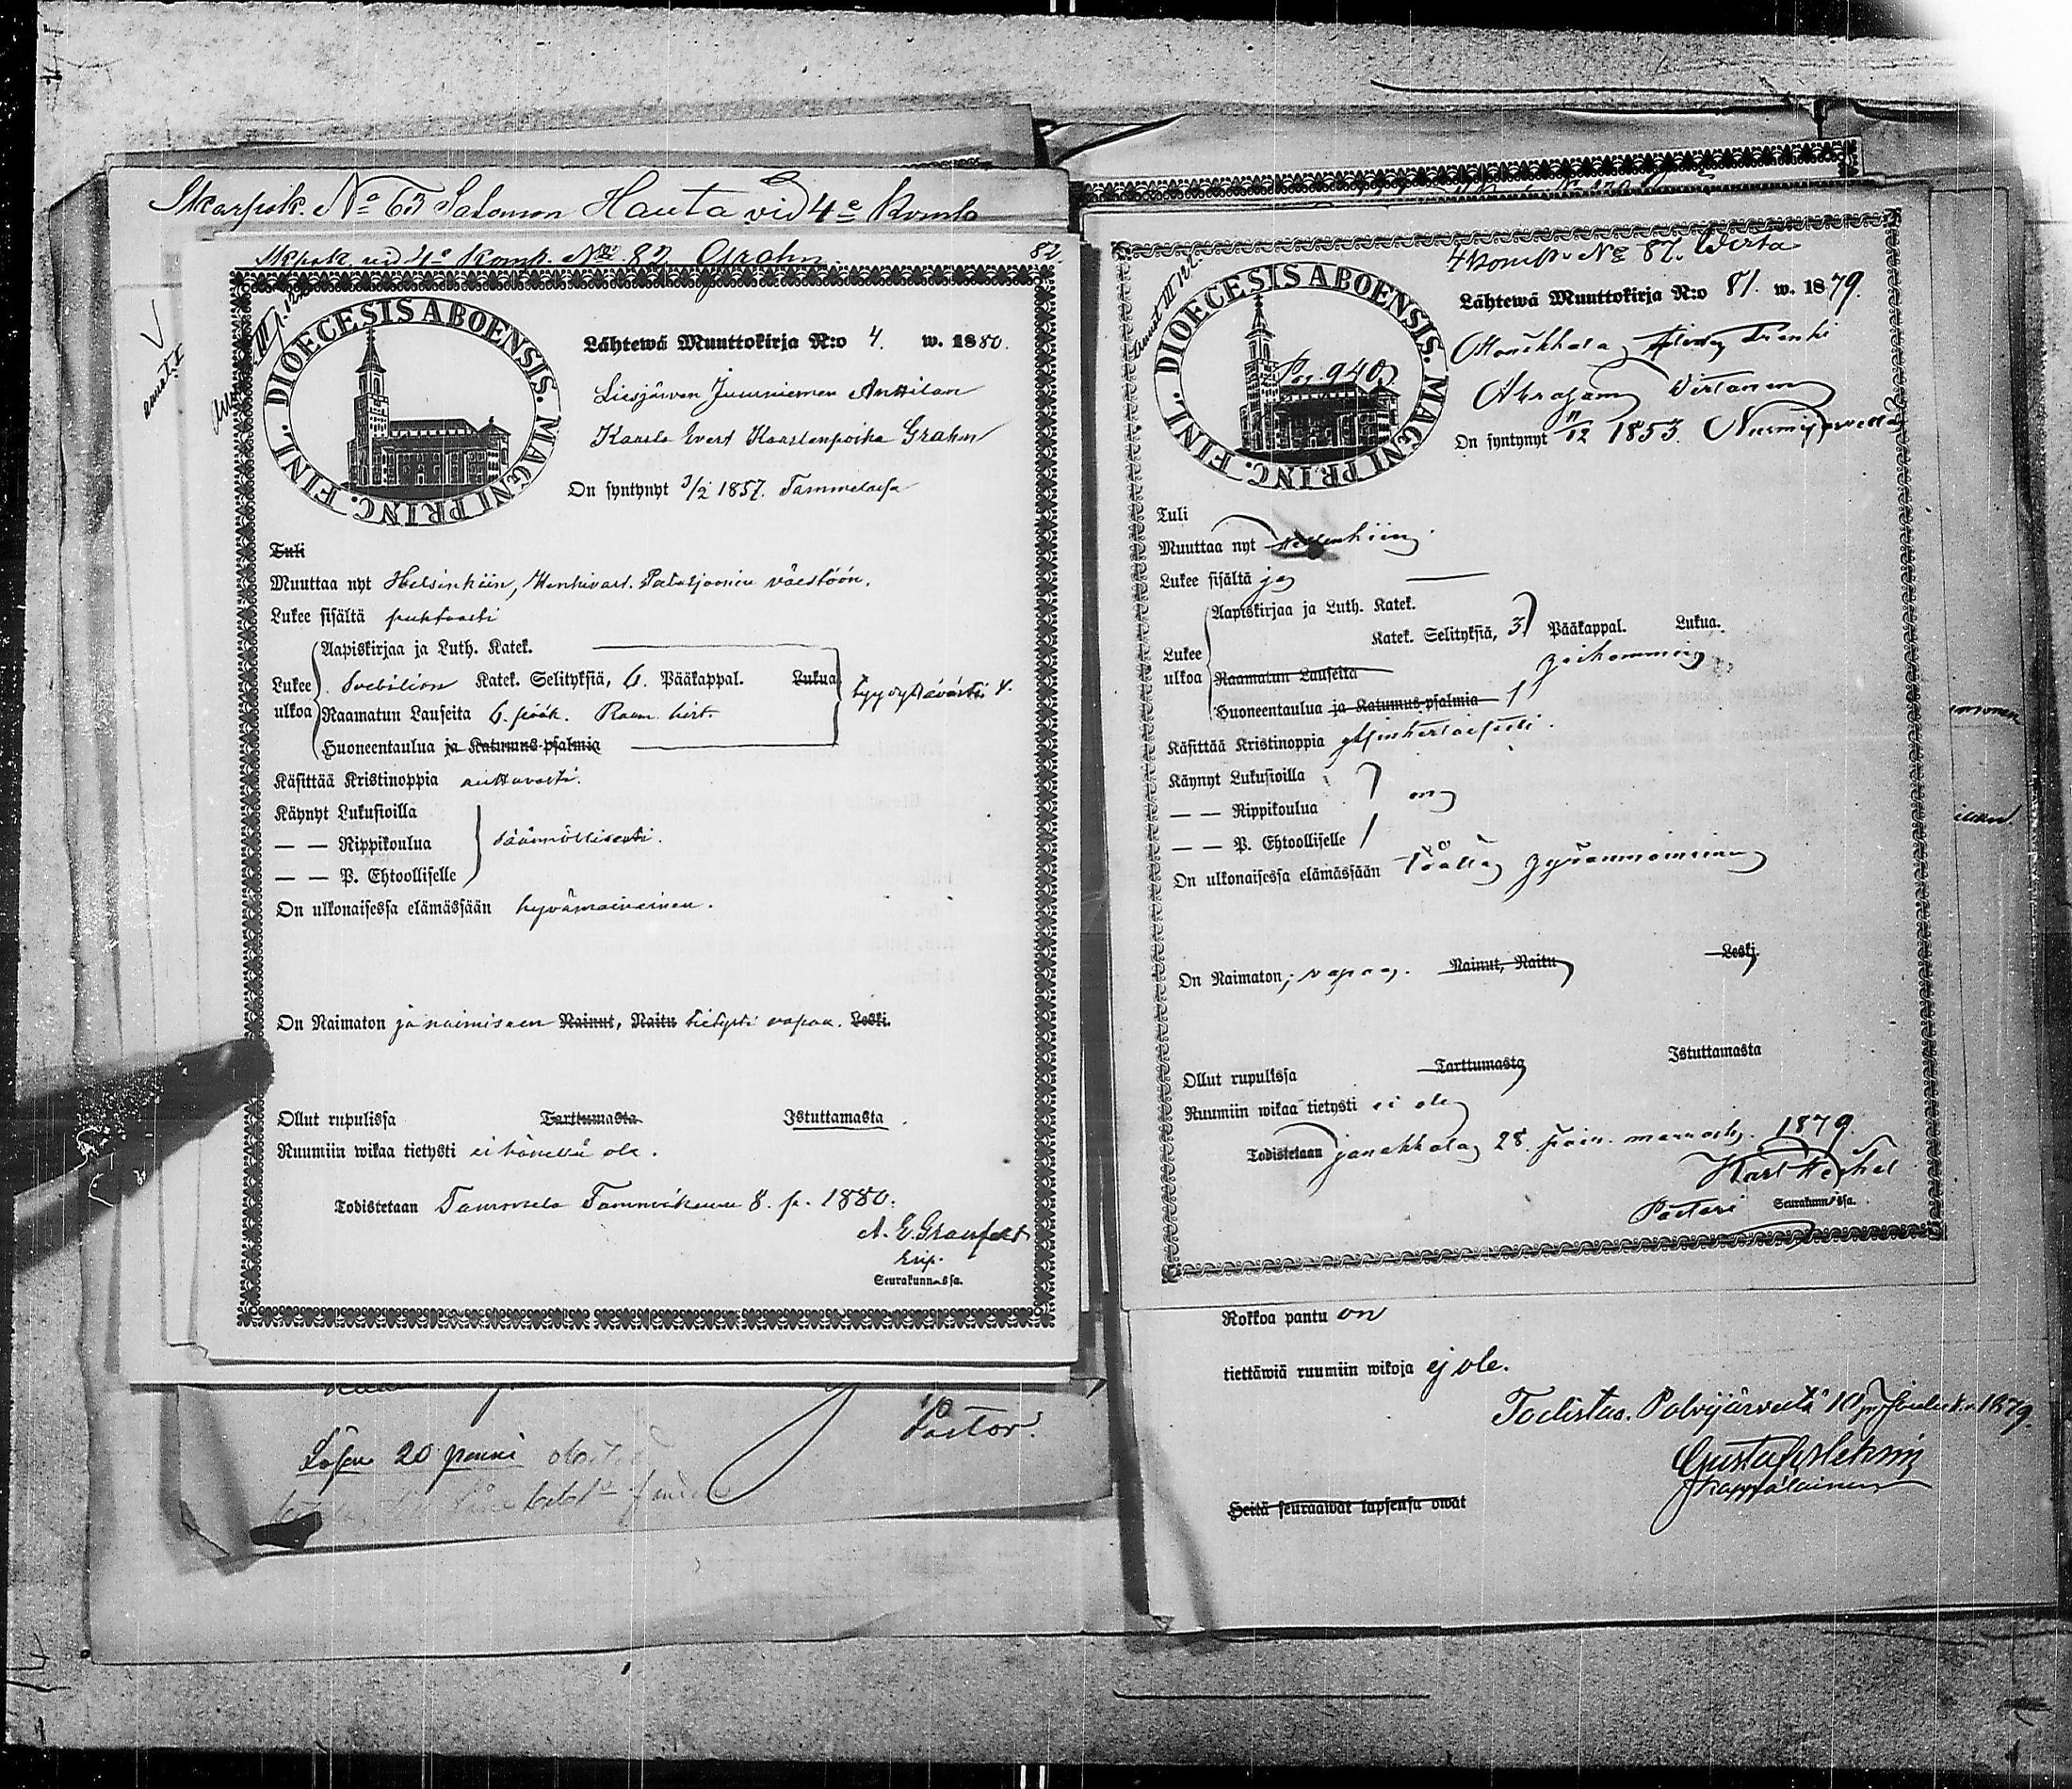 Skarpsk. No 63 Salomon Hauta vid 4e Komp
Skpsk. vid 4e Komp. No 82 Grahn. 82
DIOECESIS ABOENSIS. MAGNI PRINC. FINL.
Lähtewä Muuttokirja N:o 4. w. 1880.
Liesjärven Juurniemen Anttilan
Kaarlo Evert Kaarlenpoika Grahn
On syntynyt 3/2 1857. Tammelassa
Tuli
Muuttaa nyt Helsinkiin, Henkivart. Pataljoonin väestöön.
Lukee sisältä puhtaasti
Aapiskirjaa ja Luth. Katek.
Lukee ulkoa
Svebilion Katek. Selityksiä, 6. Pääkappal. Lukua
Raamatun Lauseita 6. pääk. Raam. hist.
Huoneentaulua ja Katumus-psalmia
hyvytävästi
Käsittää Kristinoppia auttavasti.
Käynyt Lukusioilla
— — Rippikoulua säännöllisesti.
— — P. Ehtoolliselle
On ulkonaisessa elämässään hyvämaineinen.
On Naimaton ja naimiseen Nainut, Naitu tietysti vapaa. Leski.
Ollut rupulissa Tarttumasta Istuttamasta
Ruumiin wikaa tietysti ei hänellä ole.
Todistetaan Tammela Tammikuun 8. p. 1880.
A. E. Granfelt
Seurakunnassa.
Pastor.
Lösen 20 penni
4 Komp. No 87. Wirta
DIOECESIS ABOENSIS. MAGNI PRINC. FINL.
Pag. 940
Lähtewä Muuttokirja N:o 81. w. 1879.
Abraham Virtanen
On syntynyt 11/12 1853. Nurmijärvellä
Tuli
Muuttaa nyt
Lukee sisältä
Aapiskirjaa ja Luth. Katek.
Katek. Selityksiä, 3 Pääkappal. Lukua.
Lukee ulkoa
Raamatun Lauseita
Huoneentaulua ja Katumus-psalmia
Käsittää Kristinoppia
Käynyt Lukusioilla
— — Rippikoulua on
— — P. Ehtoolliselle
On ulkonaisessa elämässään täällä
On Naimaton, vapaa. Nainut, Naitu Leski.
Ollut rupulissa Tarttumasta Istuttamasta
Ruumiin wikaa tietysti ei ole
Todistetaan Janakkala 28. päiv. marrask. 1879.
Pastori Seurakunnassa.
Rokkoa pantu on
tiettäwiä ruumiin wikoja ej ole.
Todistaa. Polvijärveltä 1879.
Kappalainen
Heitä seuraawat lapsensa owat